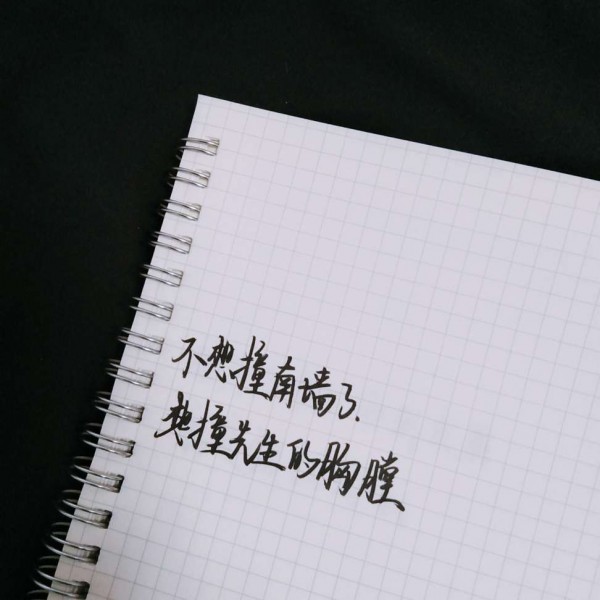 不想撞南墙了.
想撞先生的胸膛、